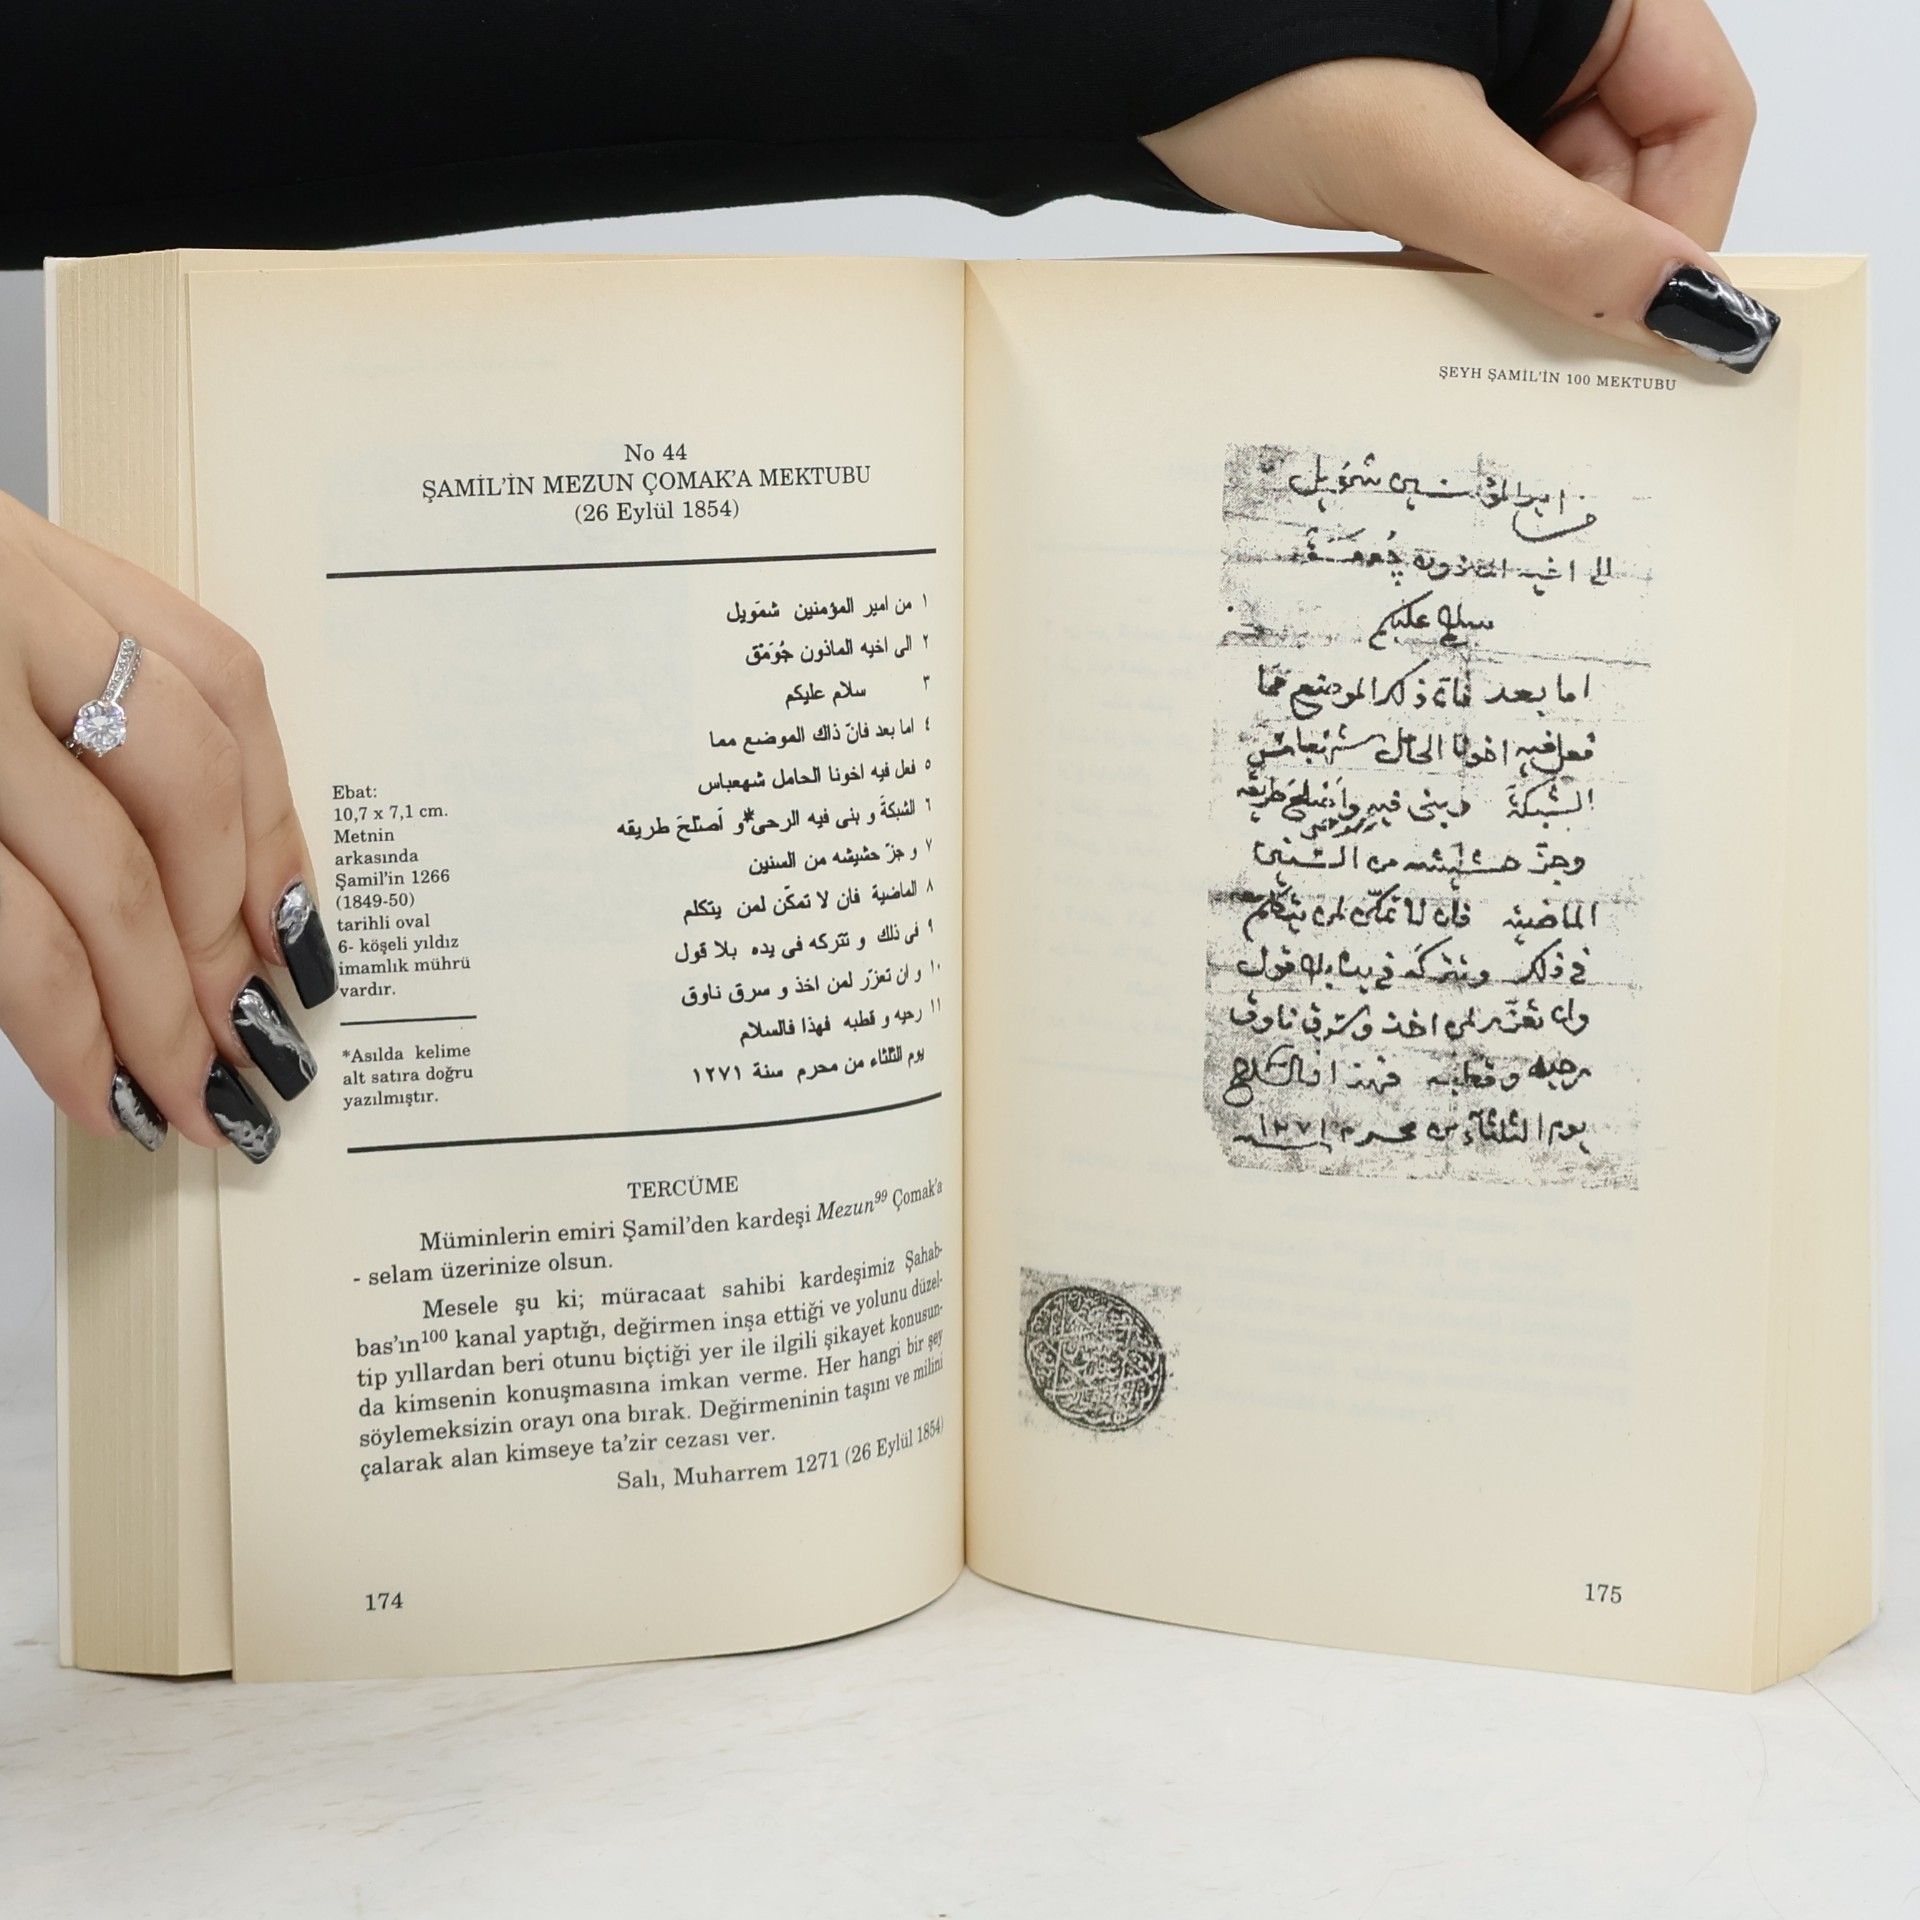 No 44
ŞAMİL'İN MEZUN ÇOMAK'A MEKTUBU
(26 Eylül 1854)
١ من امير المؤمنين شمَويل
٢ الى اخيه الماذون جُومَقْ
٣ سلام عليكم
٤ اما بعد فانّ ذاك الموضع مما
٥ فعل فيه اخونا الحامل شهعباس
٦ الشبكةَ و بنى فيه الرحى* و اَصْلَحَ طريقه
٧ و جزّ حشيشه من السنين
٨ الماضية فان لا تمكّن لمن يتكلم
٩ فى ذلك و تتركه فى يده بلا قول
١٠ و ان تعزّر لمن اخذ و سرق ناوق
١١ رحيه و قطبه فهذا فالسلام
يوم الثلثاء من محرم سنة ١٢٧١
Ebat:
10,7 x 7,1 cm.
Metnin
arkasında
Şamil'in 1266
(1849-50)
tarihli oval
6- köşeli yıldız
imamlık mührü
vardır.
*Asılda kelime
alt satıra doğru
yazılmıştır.
TERCÜME
Müminlerin emiri Şamil'den kardeşi Mezun99 Çomak'a
- selam üzerinize olsun.
Mesele şu ki; müracaat sahibi kardeşimiz Şahab-
bas'ın100 kanal yaptığı, değirmen inşa ettiği ve yolunu düzel-
tip yıllardan beri otunu biçtiği yer ile ilgili şikayet konusun-
da kimsenin konuşmasına imkan verme. Her hangi bir şey
söylemeksizin orayı ona bırak. Değirmeninin taşını ve milini
çalarak alan kimseye ta'zir cezası ver.
Salı, Muharrem 1271 (26 Eylül 1854)
174
ŞEYH ŞAMİL'İN 100 MEKTUBU
من امير المؤمنين شمَويل
الى اخيه الماذون چُومَقْ
سلام عليكم
اما بعد فانّ ذلك الموضع ممّا
فعل فيه اخونا الحامل شهعباس
الشبكةَ وبنى فيه واَصْلَحَ طريقه
الرحى
وجزّ حشيشه من السنين
الماضية فان لا تمكّن لمن يتكلم
فى ذلك وتتركه فى يده بلا قول
وان تعزّر لمن اخذ وسرق ناوق
رحيه وقطبه فهذا فالسلام
يوم الثلثاء من محرم سنة ١٢٧١
175